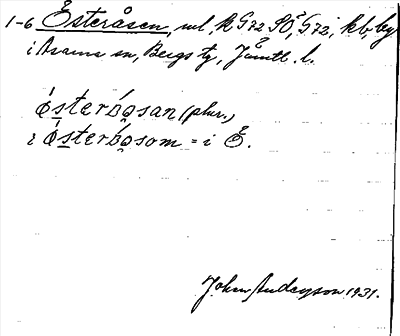 1-6 Österåsen, ml, k G72 SÖ, G72, kb, by
i Åsarne sn, Bergs tg, Jämtl. l.
österbo̥san (plur.)
i österbo̥som = i Ö.
Johan Anderson 1931.